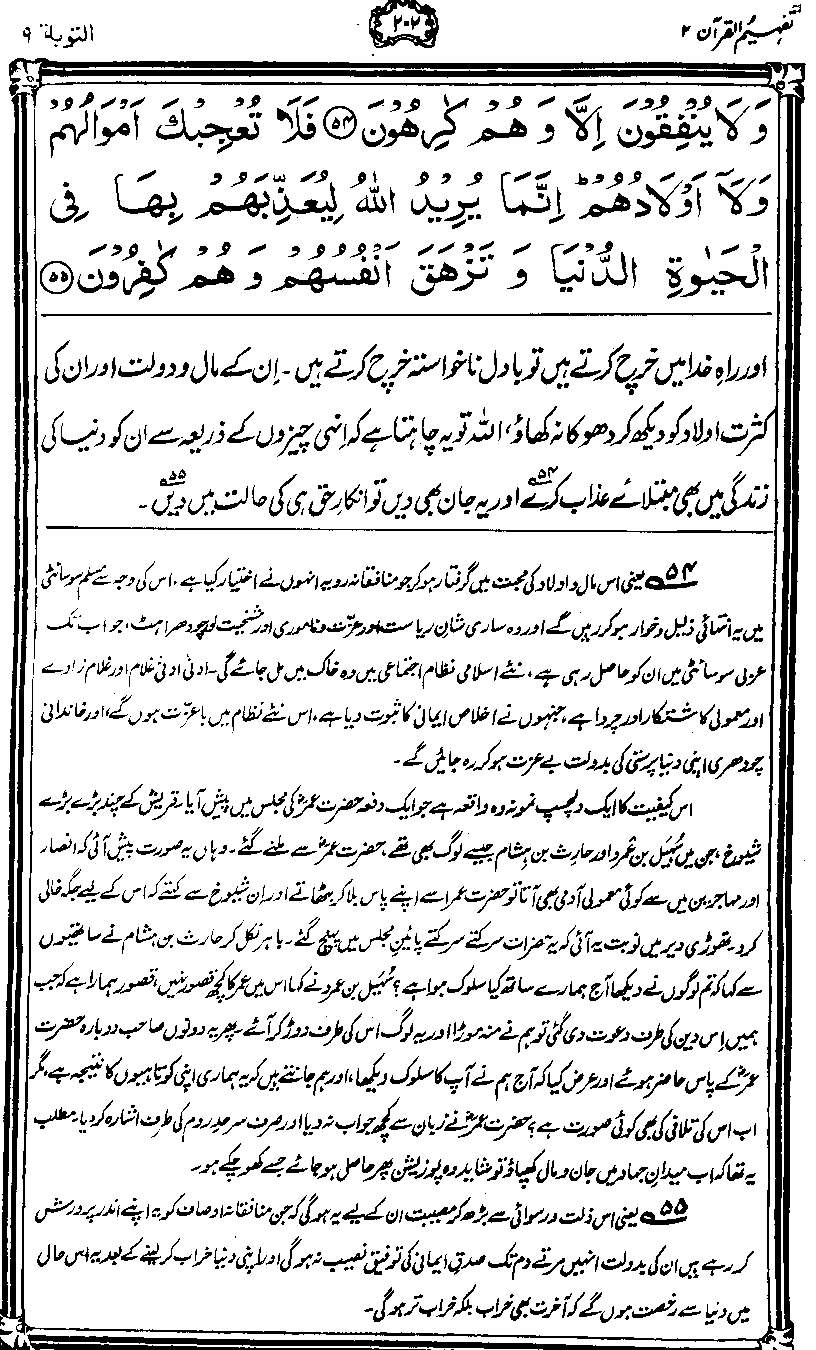 تفہیم القرآن ۲
۲۰۲
التوبة ۹
وَلَا يُنْفِقُوْنَ اِلَّا وَ هُمْ كٰرِهُوْنَ ﴿۵۴﴾ فَلَا تُعْجِبْكَ اَمْوَالُهُمْ
وَلَاۤ اَوْلَادُهُمْ ؕ اِنَّمَا يُرِيْدُ اللّٰهُ لِيُعَذِّبَهُمْ بِهَا فِى
الْحَيٰوةِ الدُّنْيَا وَ تَزْهَقَ اَنْفُسُهُمْ وَ هُمْ كٰفِرُوْنَ ﴿۵۵﴾
اور راہِ خدا میں خرچ کرتے ہیں تو بادل ناخواستہ خرچ کرتے ہیں۔ اِن کے مال و دولت اور ان کی
کثرت اولاد کو دیکھ کر دھوکا نہ کھاؤ، اللہ تو یہ چاہتا ہے کہ اِنہی چیزوں کے ذریعہ سے ان کو دنیا کی
زندگی میں بھی مبتلائے عذاب کرے ۵۴ اور یہ جان بھی دیں تو انکارِ حق ہی کی حالت میں دیں ۵۵۔
۵۴ یعنی اس مال و اولاد کی محبت میں گرفتار ہو کر جو منافقانہ رویہ انہوں نے اختیار کیا ہے، اس کی وجہ سے مسلم سوسائٹی
میں یہ انتہائی ذلیل و خوار ہو کر رہیں گے اور وہ ساری شانِ ریاست اور عزت و ناموری اور مشیخت اور چودھراہٹ، جو اب تک
عربی سوسائٹی میں ان کو حاصل رہی ہے، نئے اسلامی نظام اجتماعی میں وہ خاک میں مل جائے گی۔ ادنیٰ ادنیٰ غلام اور غلام زادے
اور معمولی کاشتکار اور چرواہے، جنہوں نے اخلاص ایمانی کا ثبوت دیا ہے، اس نئے نظام میں باعزت ہوں گے، اور خاندانی
چودھری اپنی دنیا پرستی کی بدولت بے عزت ہو کر رہ جائیں گے۔
اس کیفیت کا ایک دلچسپ نمونہ وہ واقعہ ہے جو ایک دفعہ حضرت عمرؓ کی مجلس میں پیش آیا۔ قریش کے چند بڑے بڑے
شیوخ، جن میں سُہَیل بن عَمرو اور حارث بن ہشام جیسے لوگ بھی تھے، حضرت عمرؓ سے ملنے گئے۔ وہاں یہ صورت پیش آئی کہ انصار
اور مہاجرین میں سے کوئی معمولی آدمی بھی آتا تو حضرت عمرؓ اسے اپنے پاس بلا کر بٹھاتے اور اِن شیوخ سے کہتے کہ اس کے لیے جگہ خالی
کرو۔ تھوڑی دیر میں نوبت یہ آئی کہ یہ حضرات سرکتے سرکتے پائینِ مجلس میں پہنچ گئے۔ باہر نکل کر حارث بن ہشام نے ساتھیوں
سے کہا کہ تم لوگوں نے دیکھا آج ہمارے ساتھ کیا سلوک ہوا ہے؟ سُہَیل بن عمرو نے کہا، اس میں عمر کا کچھ قصور نہیں، قصور ہمارا ہے کہ جب
ہمیں اِس دین کی طرف دعوت دی گئی تو ہم نے منہ موڑا اور یہ لوگ اس کی طرف دوڑ کر آئے۔ پھر یہ دونوں صاحب دوبارہ حضرت
عمرؓ کے پاس حاضر ہوئے اور عرض کیا کہ آج ہم نے آپ کا سلوک دیکھا، اور ہم جانتے ہیں کہ یہ ہماری اپنی کوتاہیوں کا نتیجہ ہے، مگر
اب اس کی تلافی کی بھی کوئی صورت ہے؟ حضرت عمرؓ نے زبان سے کچھ جواب نہ دیا اور صرف سرحدِ روم کی طرف اشارہ کر دیا۔ مطلب
یہ تھا کہ اب میدانِ جہاد میں جان و مال کھپاؤ تو شاید وہ پوزیشن پھر حاصل ہو جائے جسے کھو چکے ہو۔
۵۵ یعنی اس ذلت و رسوائی سے بڑھ کر مصیبت ان کے لیے یہ ہوگی کہ جن منافقانہ اوصاف کو یہ اپنے اندر پرورش
کر رہے ہیں ان کی بدولت انہیں مرتے دم تک صدقِ ایمانی کی توفیق نصیب نہ ہوگی اور اپنی دنیا خراب کر لینے کے بعد یہ اس حال
میں دنیا سے رخصت ہوں گے کہ آخرت بھی خراب بلکہ خراب تر ہوگی۔